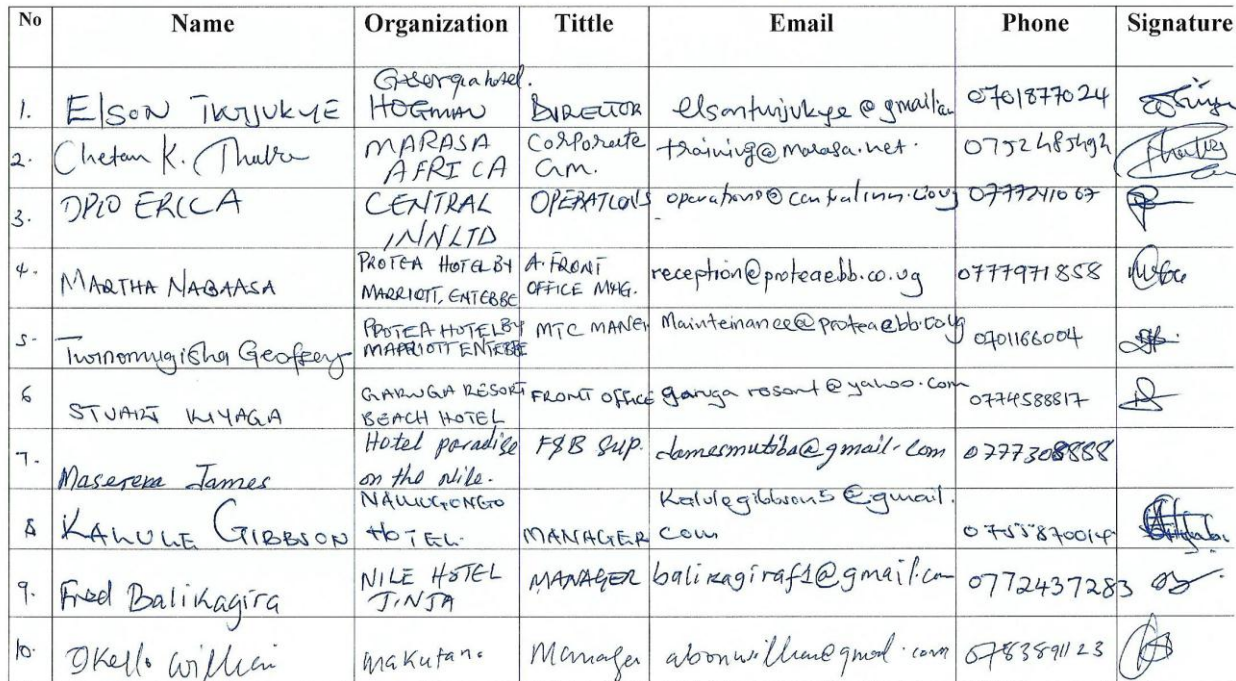 No Name Organization Tittle Email Phone Signature
1. ElSON TWIJUKYE Georgia hotel. HOGMAN DIRECTOR elsontwijukye@gmail.com 0701877024
2. Chetan K. MARASA AFRICA Corporate Gm. training@marasa.net. 0752485492
3. OPIO ERICA CENTRAL INN LTD OPERATIONS 0777241067
4. MARTHA NABAASA PROTEA HOTEL BY MARRIOTT, ENTEBBE A. FRONT OFFICE MNG. reception@proteaebb.co.ug 0777971858
5. Twinomugisha Geoffrey PROTEA HOTEL BY MARRIOTT ENTEBBE MTC Mainteinance@proteaebb.co.ug 0701166004
6 STUART KIYAGA GARUGA RESORT BEACH HOTEL FRONT OFFICE garuga resort@yahoo.com 0774588817
7. Masereka James Hotel paradise on the Nile. F&B Sup. Jamesmutiba@gmail.com 0777308888
8 KALULE GIBBSON NAMUGONGO HOTEL. MANAGER Kalulegibbson5@gmail.com 0755870014
9. Fred Balikagira NILE HOTEL JINJA MANAGER balikagiraf1@gmail.com 0772437283
10. Okello William Makutano Manager 0783891123